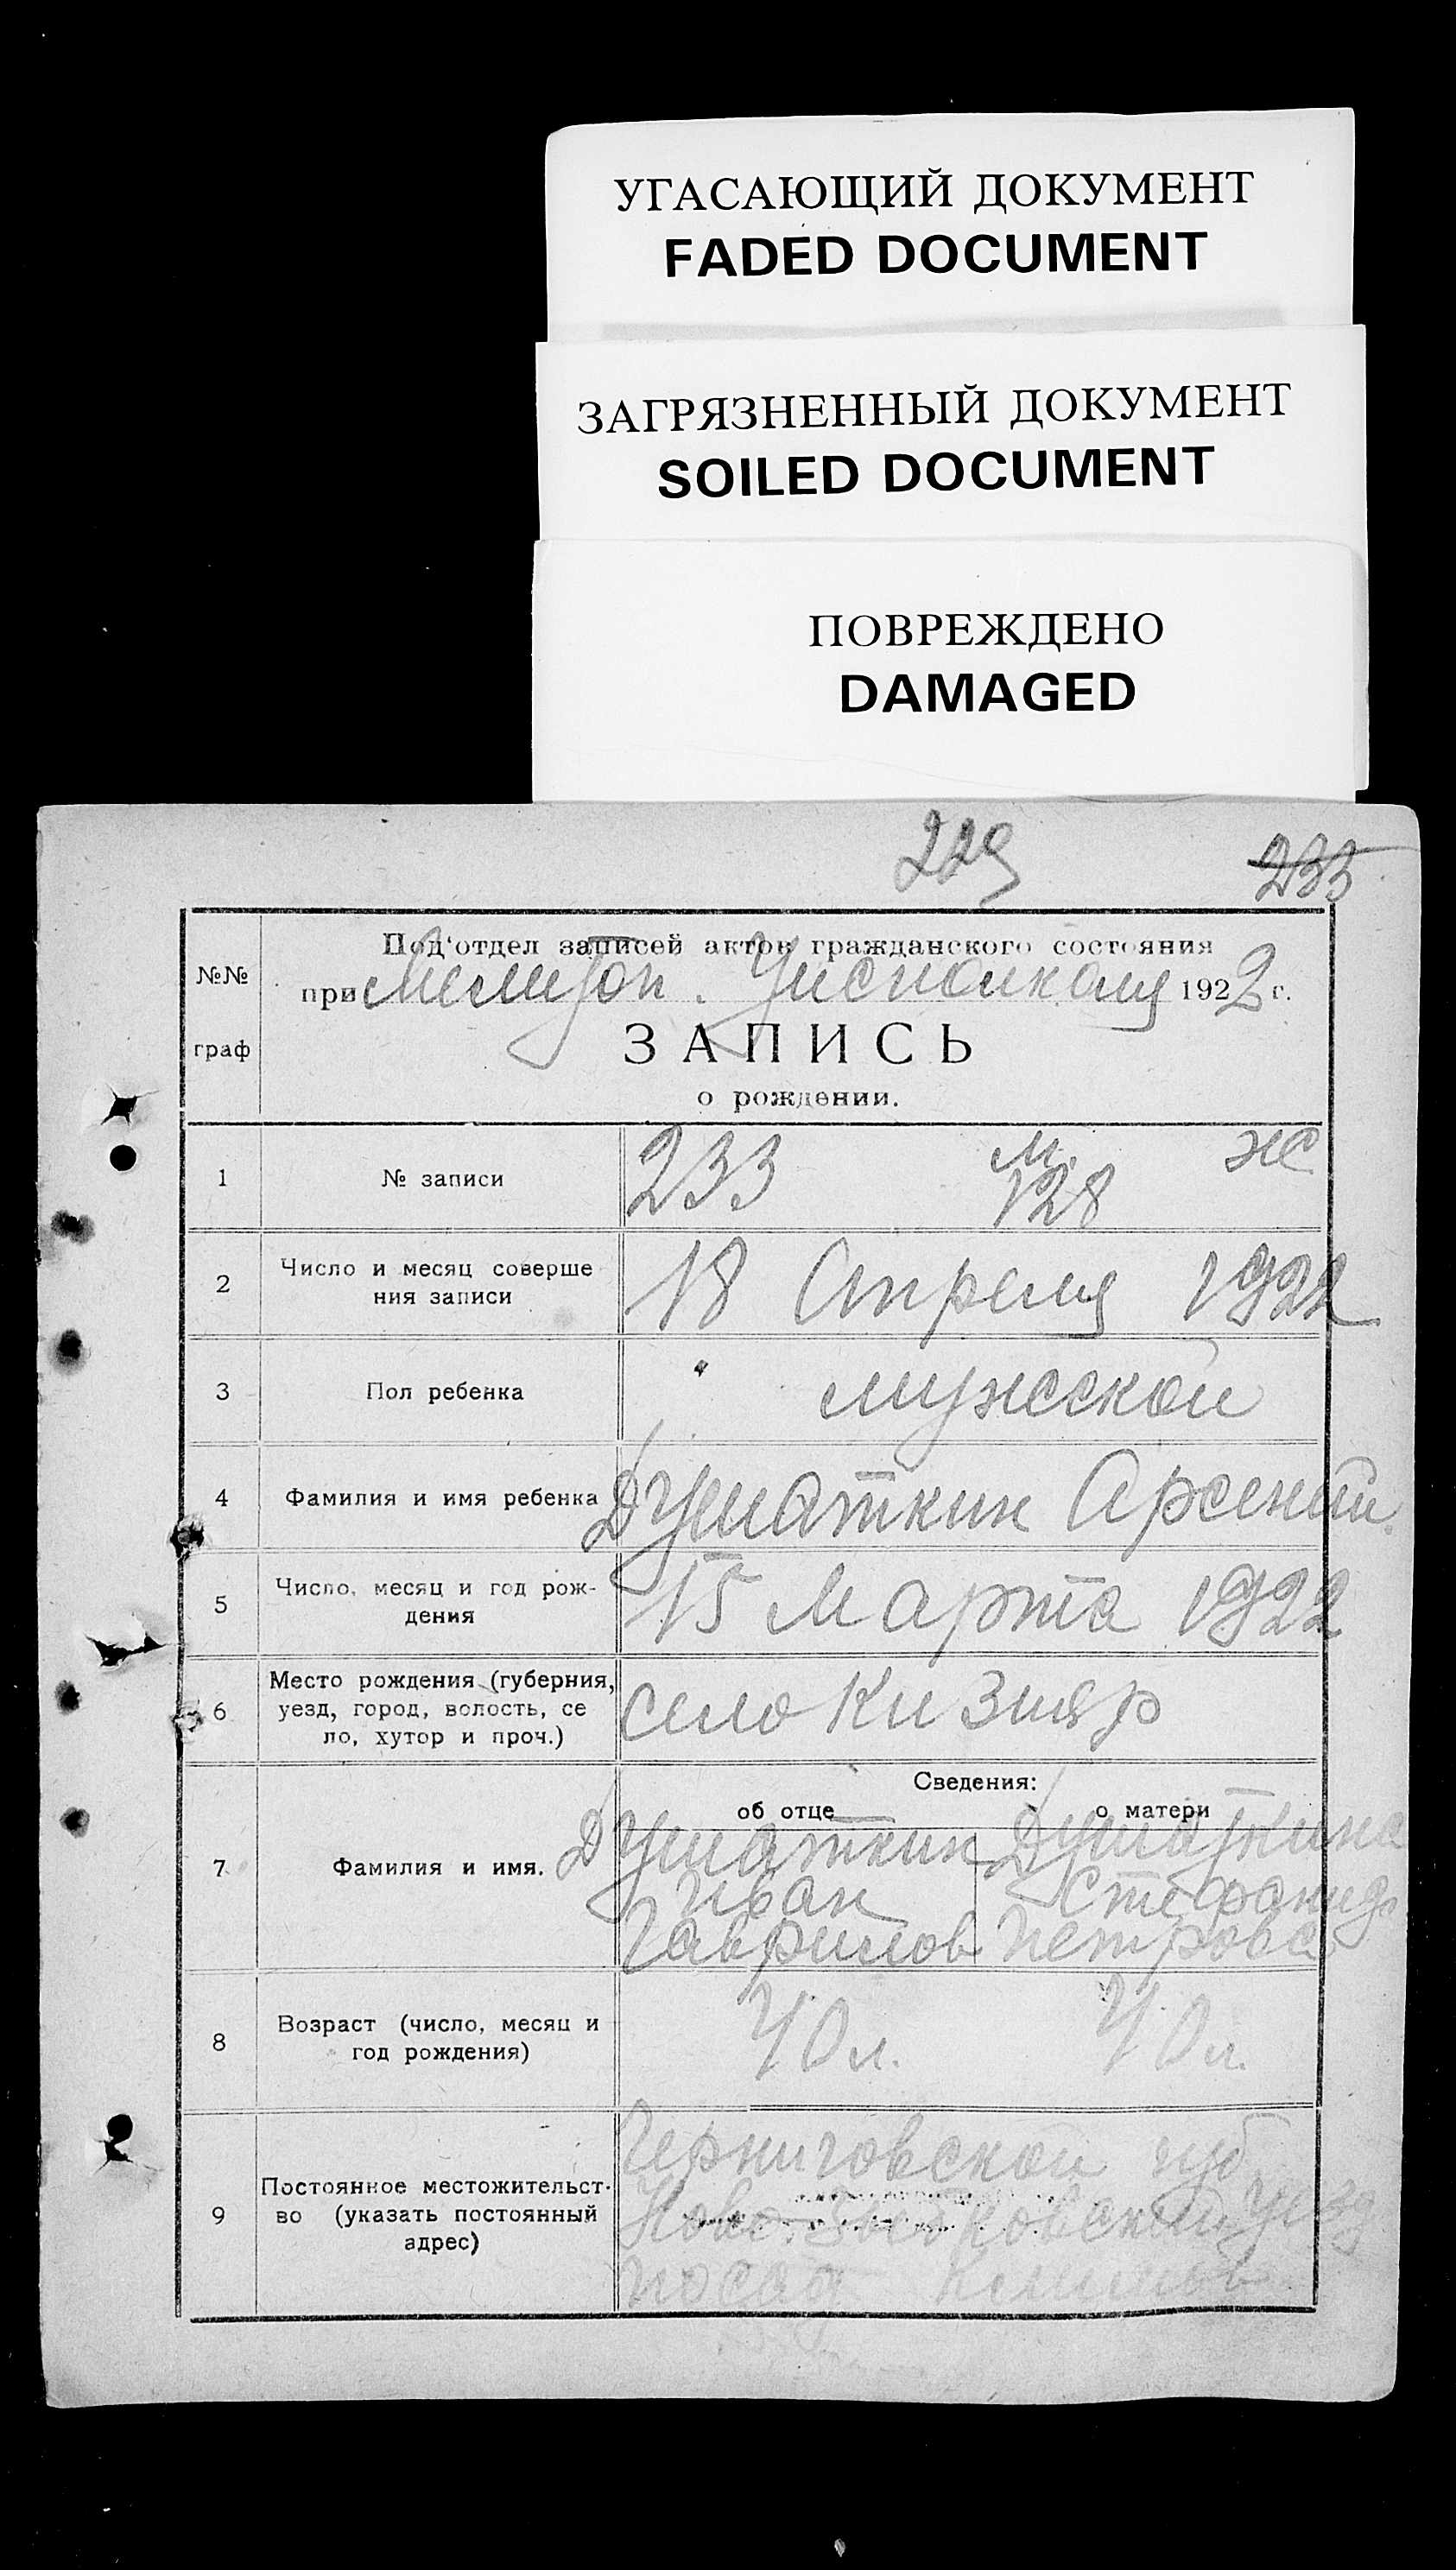 УГАСАЮЩИЙ ДОКУМЕНТ
FADED DOCUMENT
ЗАГРЯЗНЕННЫЙ ДОКУМЕНТ
SOILED DOCUMENT
ПОВРЕЖДЕНО
DAMAGED
229
233
№№
граф
Под'отдел записей актов гражданского состояния
при Мелитоп. Уисполкому 1922 г.
ЗАПИСЬ
о рождении.
1 № записи 233 м. 128 ж
2 Число и месяц соверше
ния записи 18 Апреля 1922
3 Пол ребенка мужской
4 Фамилия и имя ребенка Душаткин Арсений
5 Число, месяц и год рож-
дения 15 Марта 1922
6 Место рождения (губерния,
уезд, город, волость, се
ло, хутор и проч.) село Кизияр
Сведения:
об отце о матери
7 Фамилия и имя. Душаткин Душаткина
Иван Стефанида
Гаврилов Петрова
8 Возраст (число, месяц и
год рождения) 40 л. 40 л.
9 Постоянное местожительст-
во (указать постоянный
адрес) Черниговской губ
Ново Уезд
посад Климов